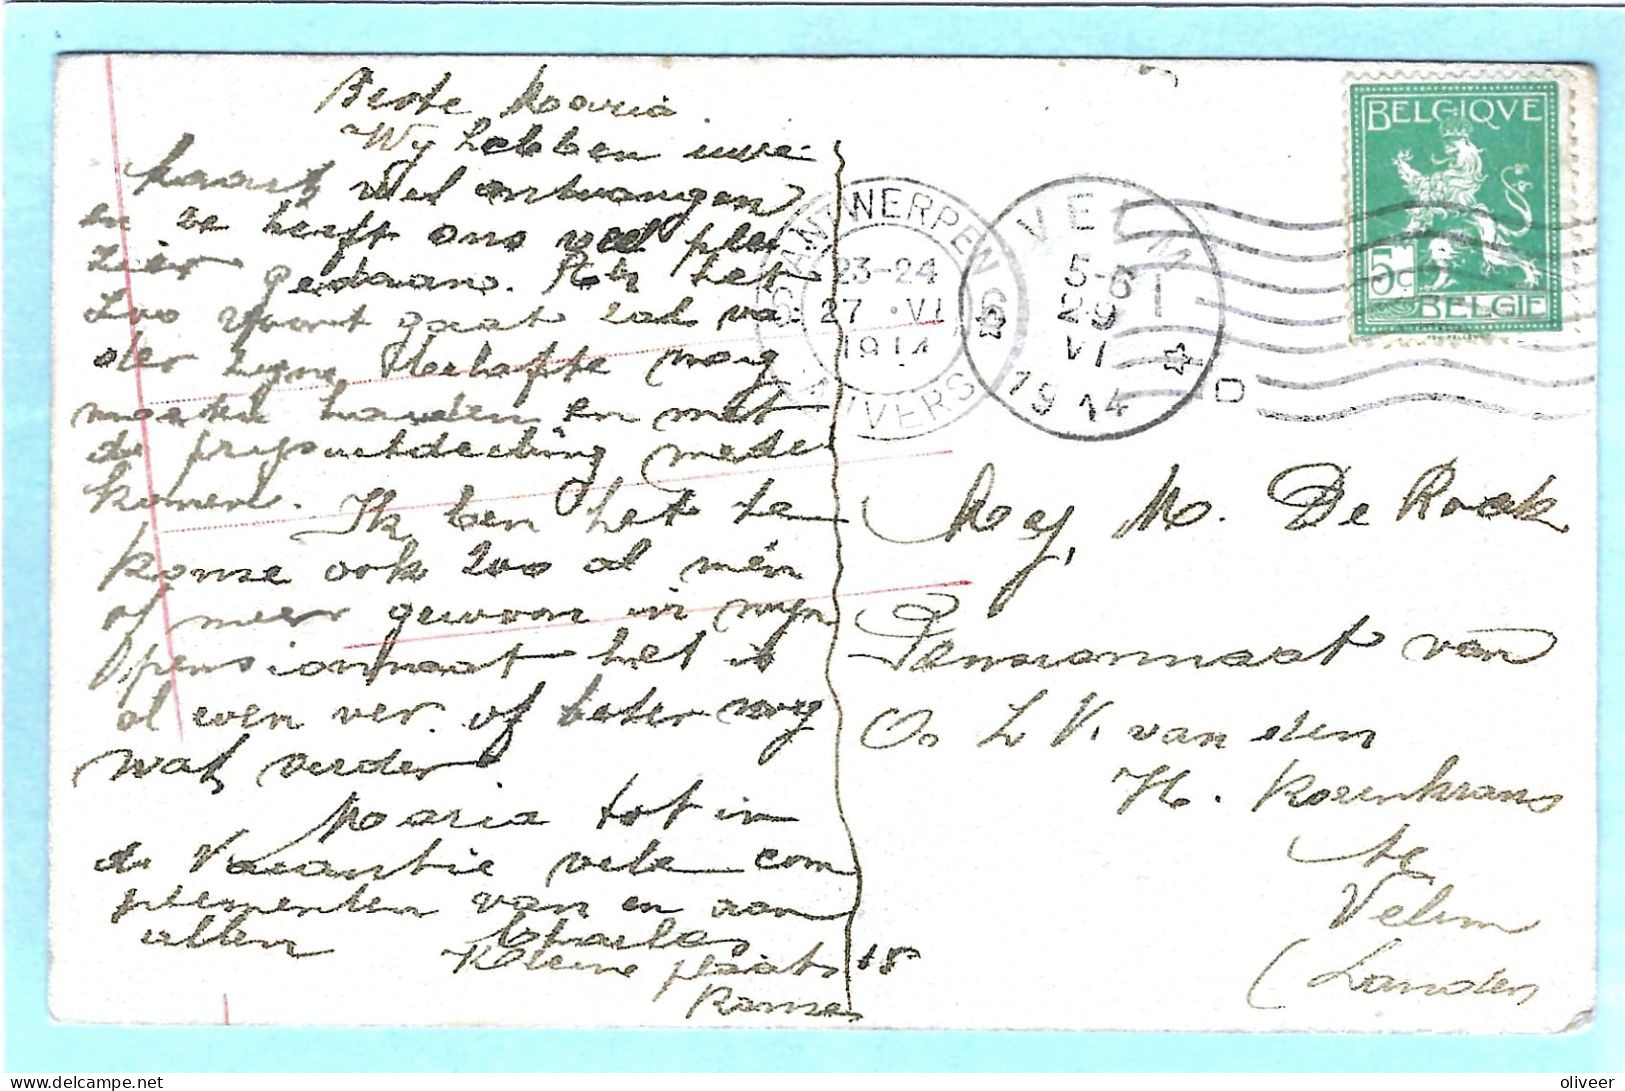 Beste Maaria
Wij hebben uwe
kaart wel ontvangen
en ze heeft ons veel ple
zier gedaan. Als het
zoo voort gaat zal va
der zyne belofte nog
moeten houden en met
de prysuitdeeling mede
komen.
Ik ben het te
komse ook zoo al min
of meer gewoon in myn
pensionnaat het is
al even ver of beter nog
wat verder
Maria tot in
de Vacantie vele com
plementen van en aan
allen Charles
Kleine plaats 18
Ranse
BELGIQVE
5c
BELGIE
ANTWERPEN 6
23-24
27 VI
1914
ANVERS 6
VELM
5-6
29
VI
1914
D
Mej. M. De Roek
Pensionnaat van
O. L V. van den
H. Rozenkrans
te
Velm
(Landen
oliveer